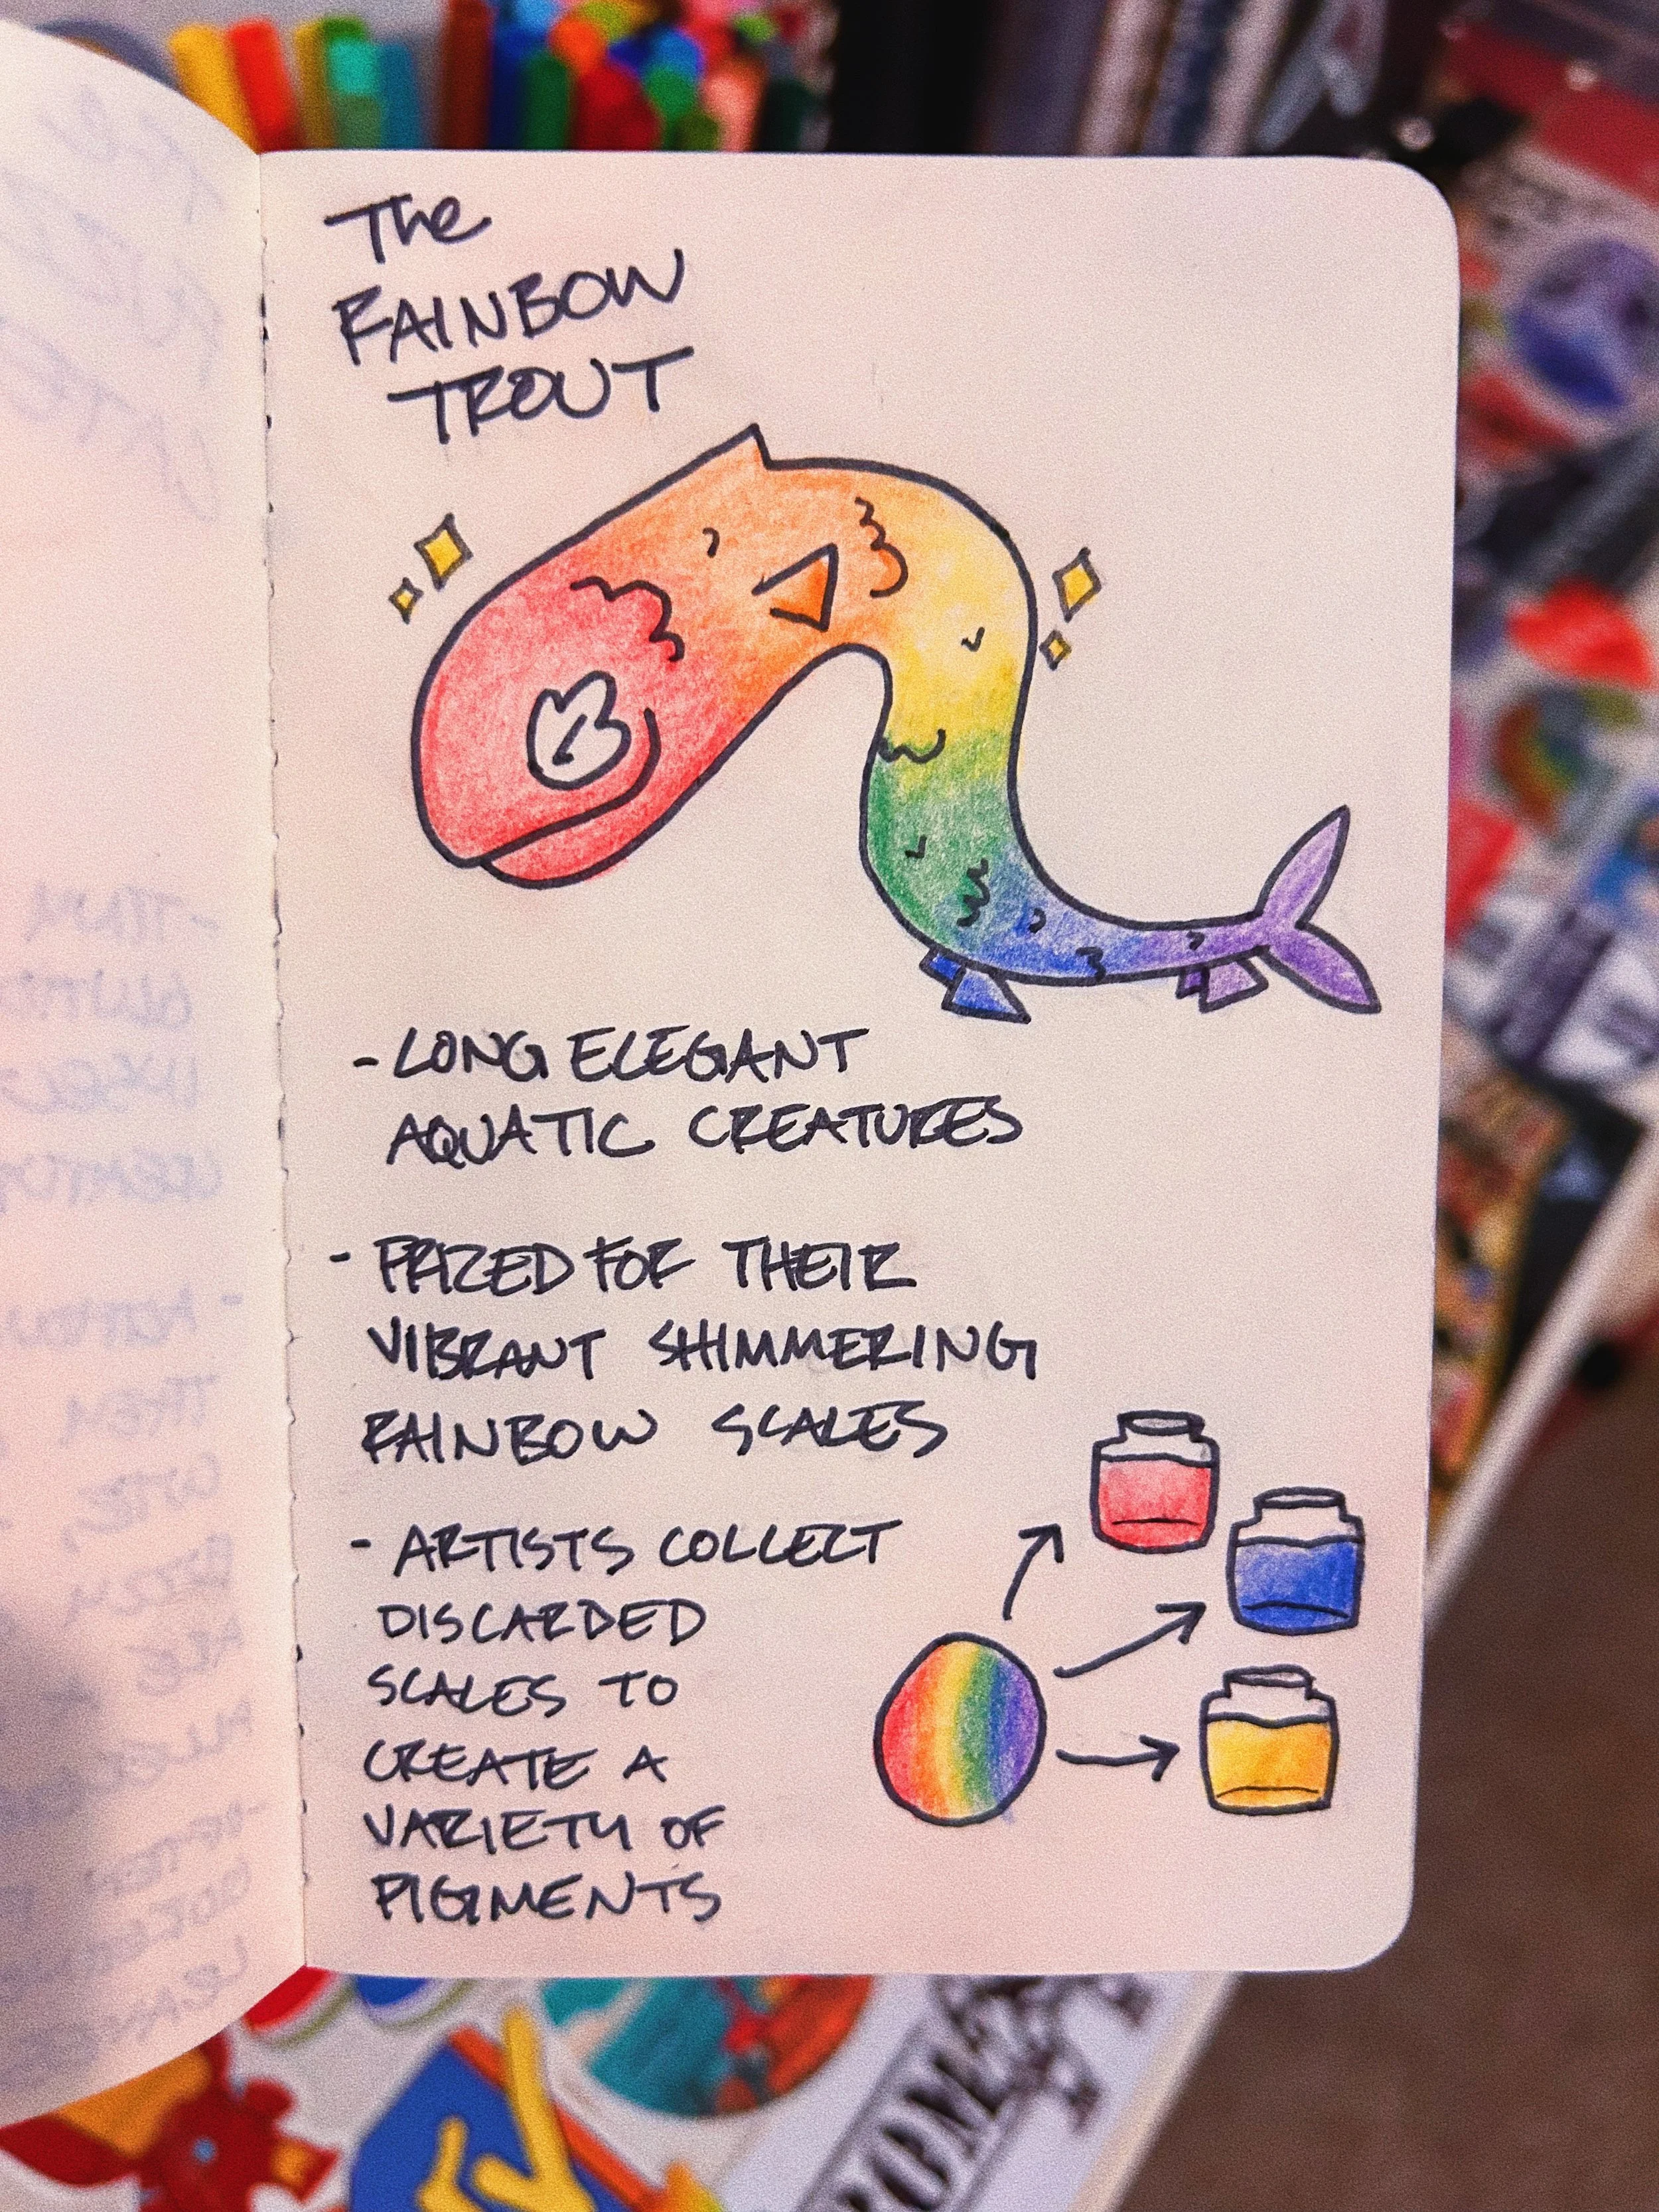 The
RAINBOW
TROUT
- LONG ELEGANT
AQUATIC CREATURES
- PRIZED FOR THEIR
VIBRANT SHIMMERING
RAINBOW SCALES
- ARTISTS COLLECT
DISCARDED
SCALES TO
CREATE A
VARIETY OF
PIGMENTS